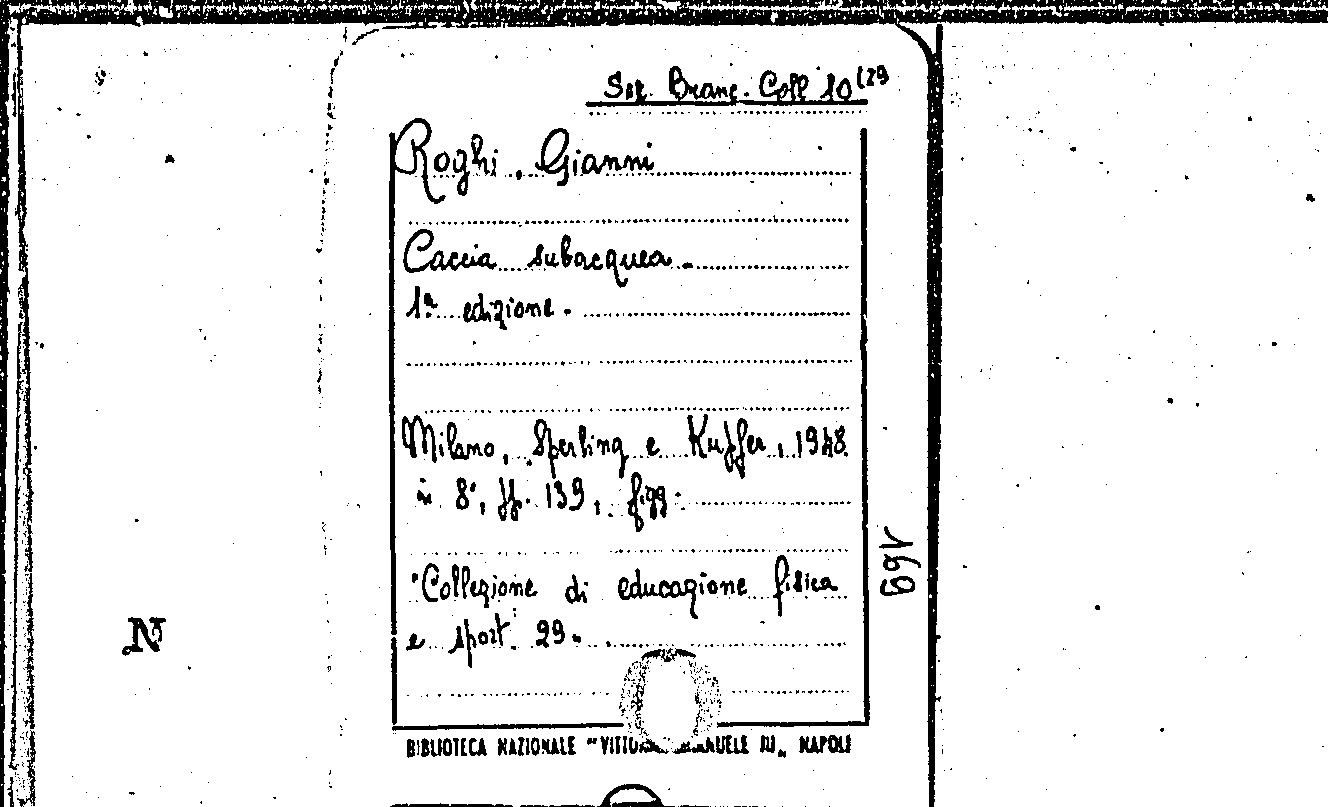 Sez. Branc. Coll 10 (29
Roghi, Gianni
Caccia subacquea.
1ª edizione.
Milano, Sperling e Kuffer, 1948.
in 8°, pp. 139, figg.
"Collezione di educazione fisica
e sport" 29.
169
N
BIBLIOTECA NAZIONALE "VITTORIO EMANUELE III" NAPOLI